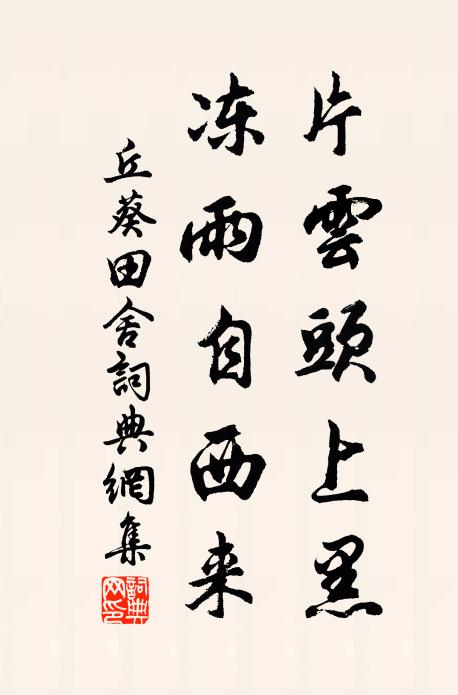 片雲頭上黑
冻雨自西来
丘葵田舍詞典網集
詞典网印